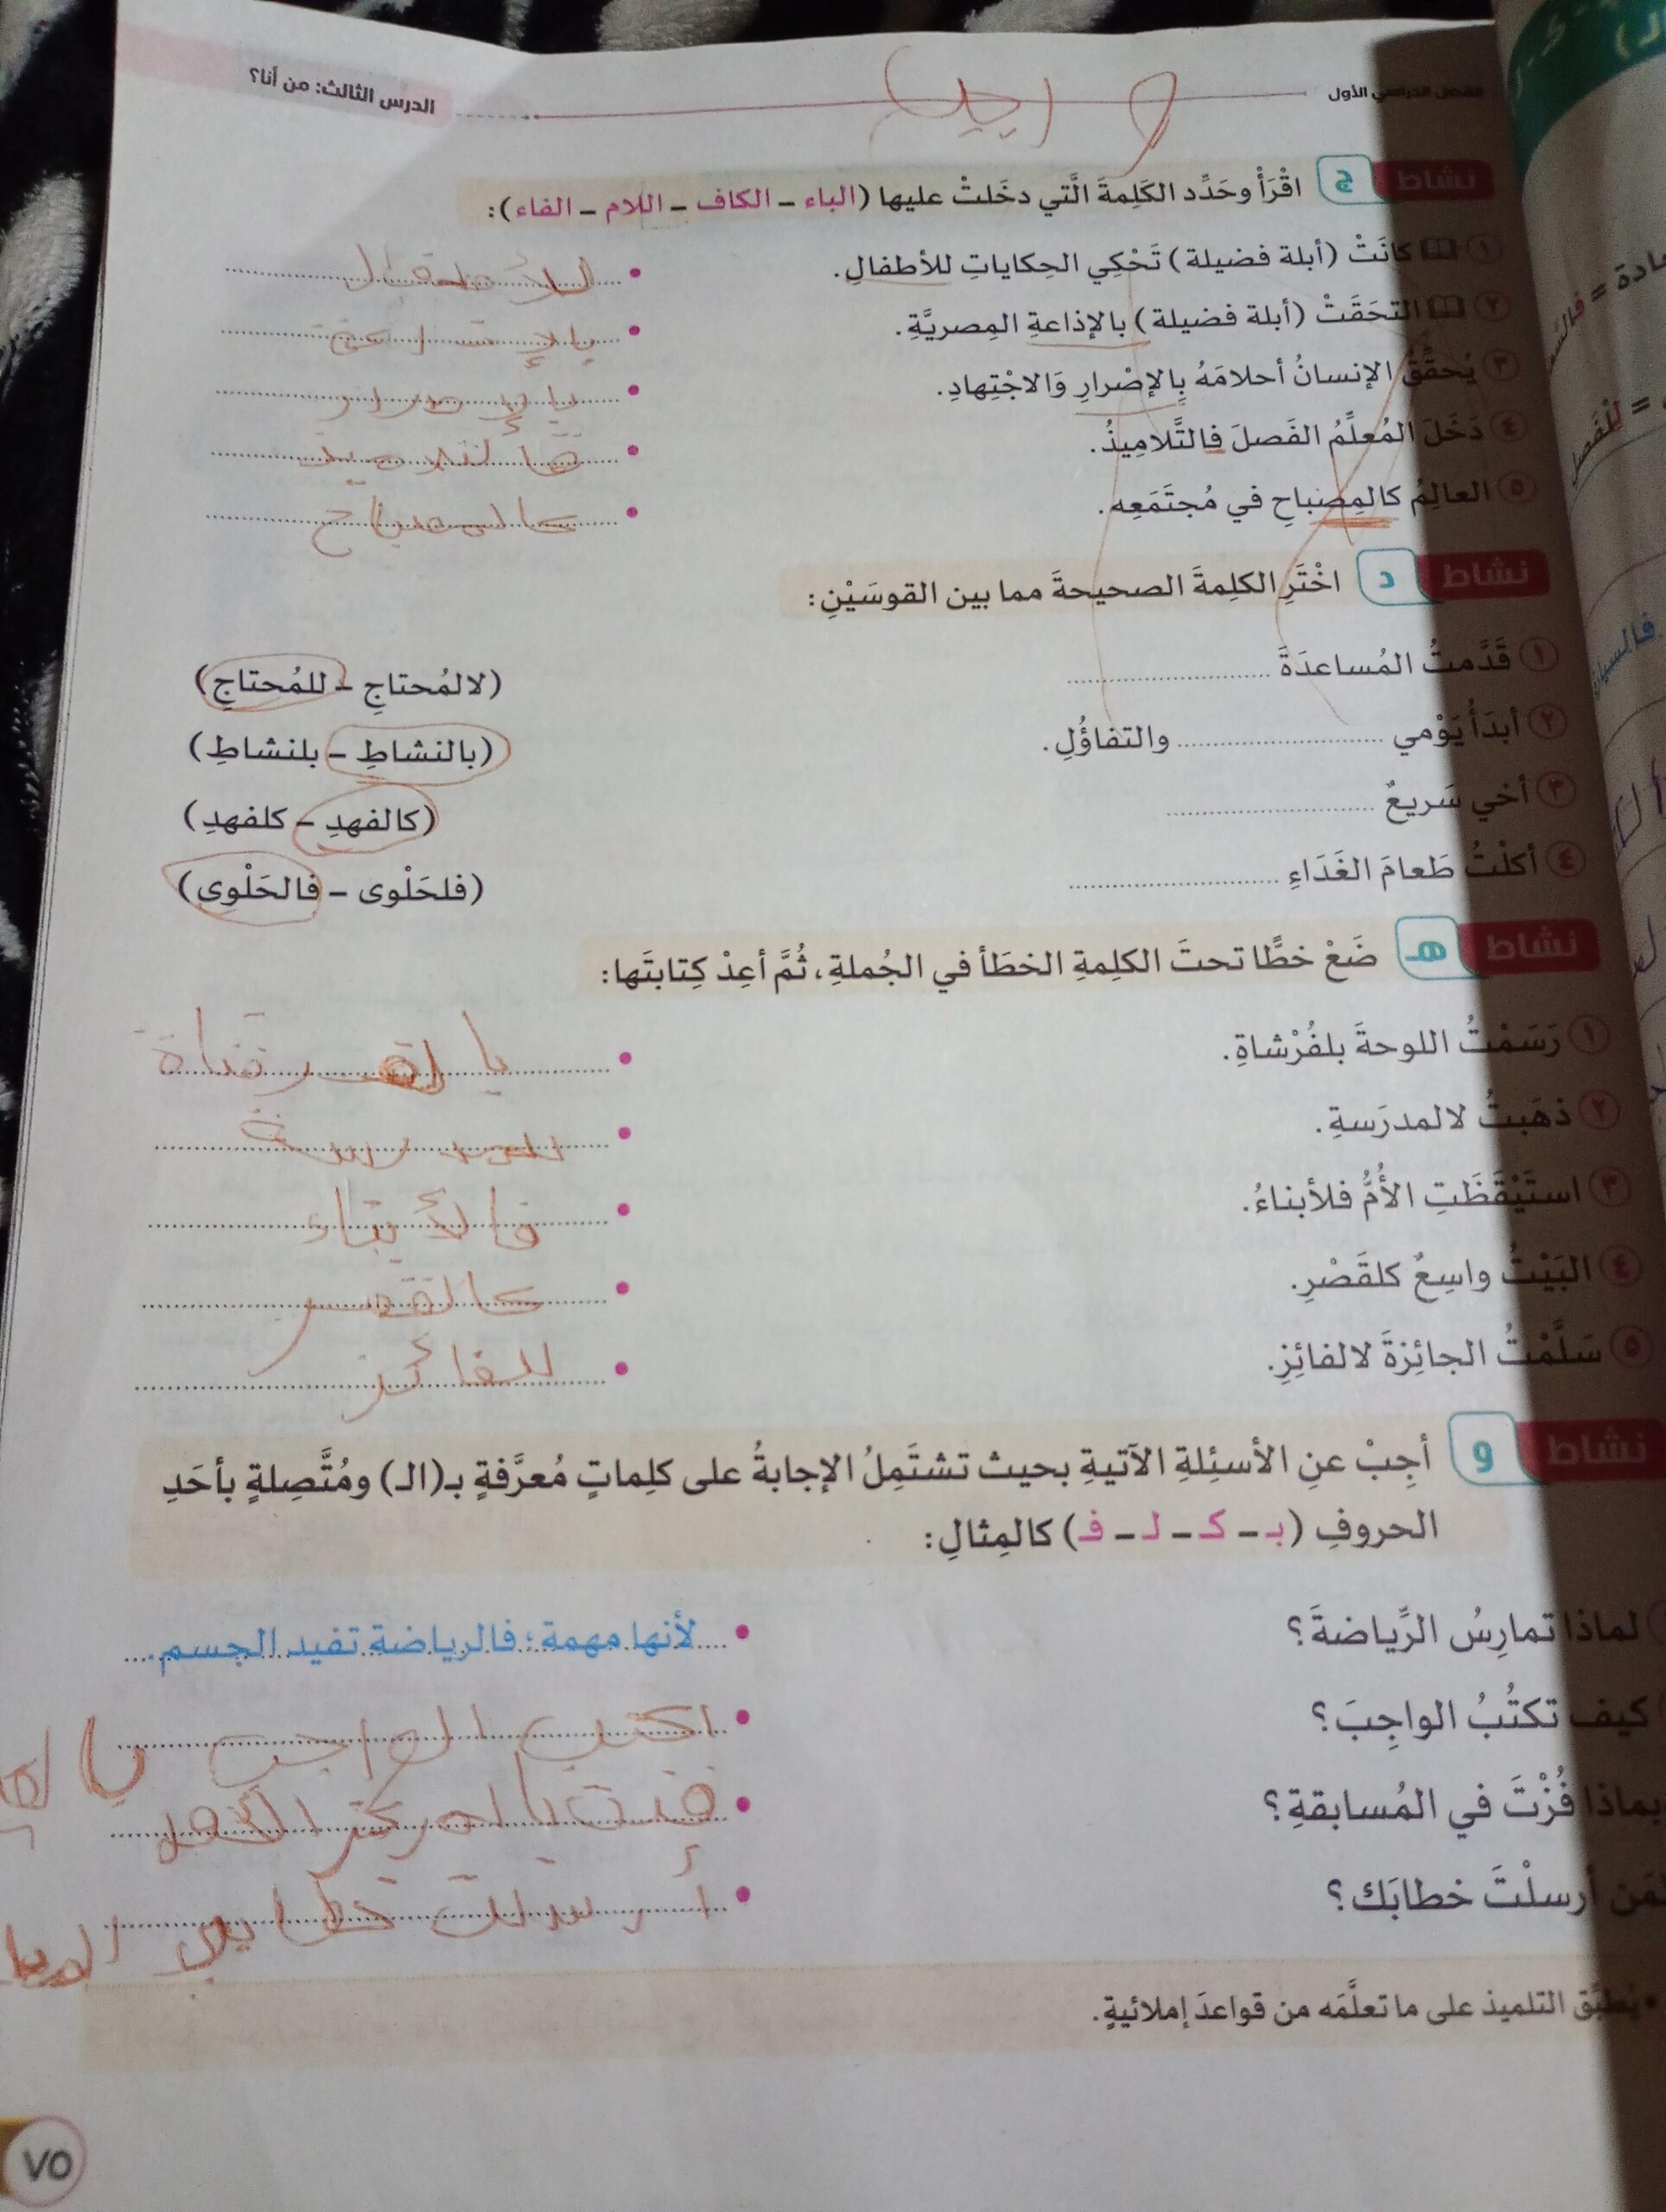 الفصل الدراسي الأول
الدرس الثالث: من أنا؟
واجب
نشاط ج اقْرَأْ وحَدِّد الكَلِمةَ الَّتي دخَلتْ عليها (الباء – الكاف – اللام – الفاء):
١ كانَتْ (أبلة فضيلة) تَحْكِي الحِكاياتِ للأطفالِ.
٢ التحَقَتْ (أبلة فضيلة) بالإذاعةِ المِصريَّةِ.
٣ يُحقِّقُ الإنسانُ أحلامَهُ بِالإصْرارِ وَالاجْتِهادِ.
بالإصرار
٤ دَخَلَ المُعلِّمُ الفَصلَ فالتَّلامِيذُ.
فالتلاميذ
٥ العالِمُ كالمِصْباحِ في مُجتَمَعِه.
كالمصباح
نشاط د اخْتَرِ الكلِمةَ الصحيحةَ مما بين القوسَيْنِ:
١ قَدَّمتُ المُساعدَةَ .......... (لالمُحتاجِ – للمُحتاجِ)
٢ أبدَأُ يَوْمي .......... والتفاؤُلِ. (بالنشاطِ – بلنشاطِ)
٣ أخي سَريعٌ .......... (كالفهدِ – كلفهدِ)
٤ أكلْتُ طَعامَ الغَدَاءِ .......... (فلحَلْوى – فالحَلْوى)
نشاط هـ ضَعْ خطًّا تحتَ الكلِمةِ الخطَأ في الجُملةِ، ثُمَّ أعِدْ كِتابتَها:
١ رَسَمْتُ اللوحةَ بلفُرْشاةِ.
بالفرشاة
٢ ذهَبتُ لالمدرَسةِ.
للمدرسة
٣ استَيْقَظَتِ الأُمُّ فلأبناءُ.
فالأبناء
٤ البَيْتُ واسِعٌ كلقَصْرِ.
كالقصر
٥ سَلَّمْتُ الجائِزةَ لالفائِزِ.
للفائز
نشاط و أجِبْ عنِ الأسئِلةِ الآتيةِ بحيث تشتَمِلُ الإجابةُ على كلِماتٍ مُعرَّفةٍ بـ(الـ) ومُتَّصِلةٍ بأحَدِ
الحروفِ (بـ – كـ – لـ – فـ) كالمِثالِ:
لماذا تمارِسُ الرِّياضةَ؟
لأنها مهمة؛ فالرياضة تفيد الجسم.
كيف تكتُبُ الواجِبَ؟
اكتب الواجب
بماذا فُزْتَ في المُسابقةِ؟
فزت بالمركز
لمَن أرسلْتَ خطابَك؟
أرسلت خطابي
• يُطبِّق التلميذ على ما تعلَّمَه من قواعدَ إملائيةٍ.
٧٥